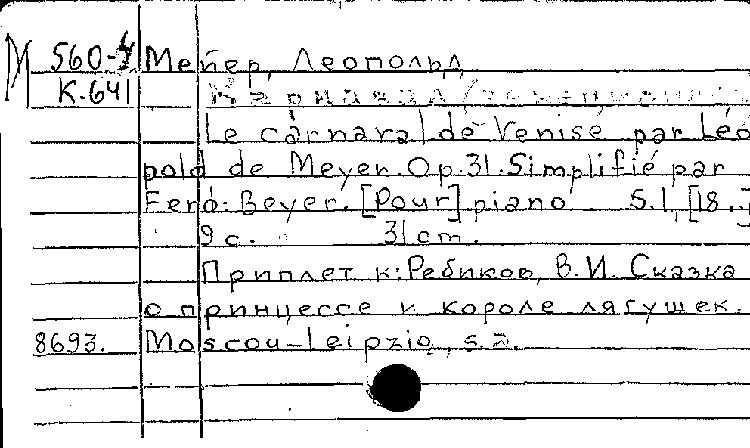 М 560-4 Мейер, Леопольд
К.641 Карнавал
Le carnaval de Venise par Léo
pold de Meyer. Op.31. Simplifié par
Ferd. Beyer. [Pour] piano S.l., [18..]
9 с. 31 cm.
Приплет к: Ребиков, В.И. Сказка
о принцессе и короле лягушек.
8693. Moscou-Leipzig, s.a.